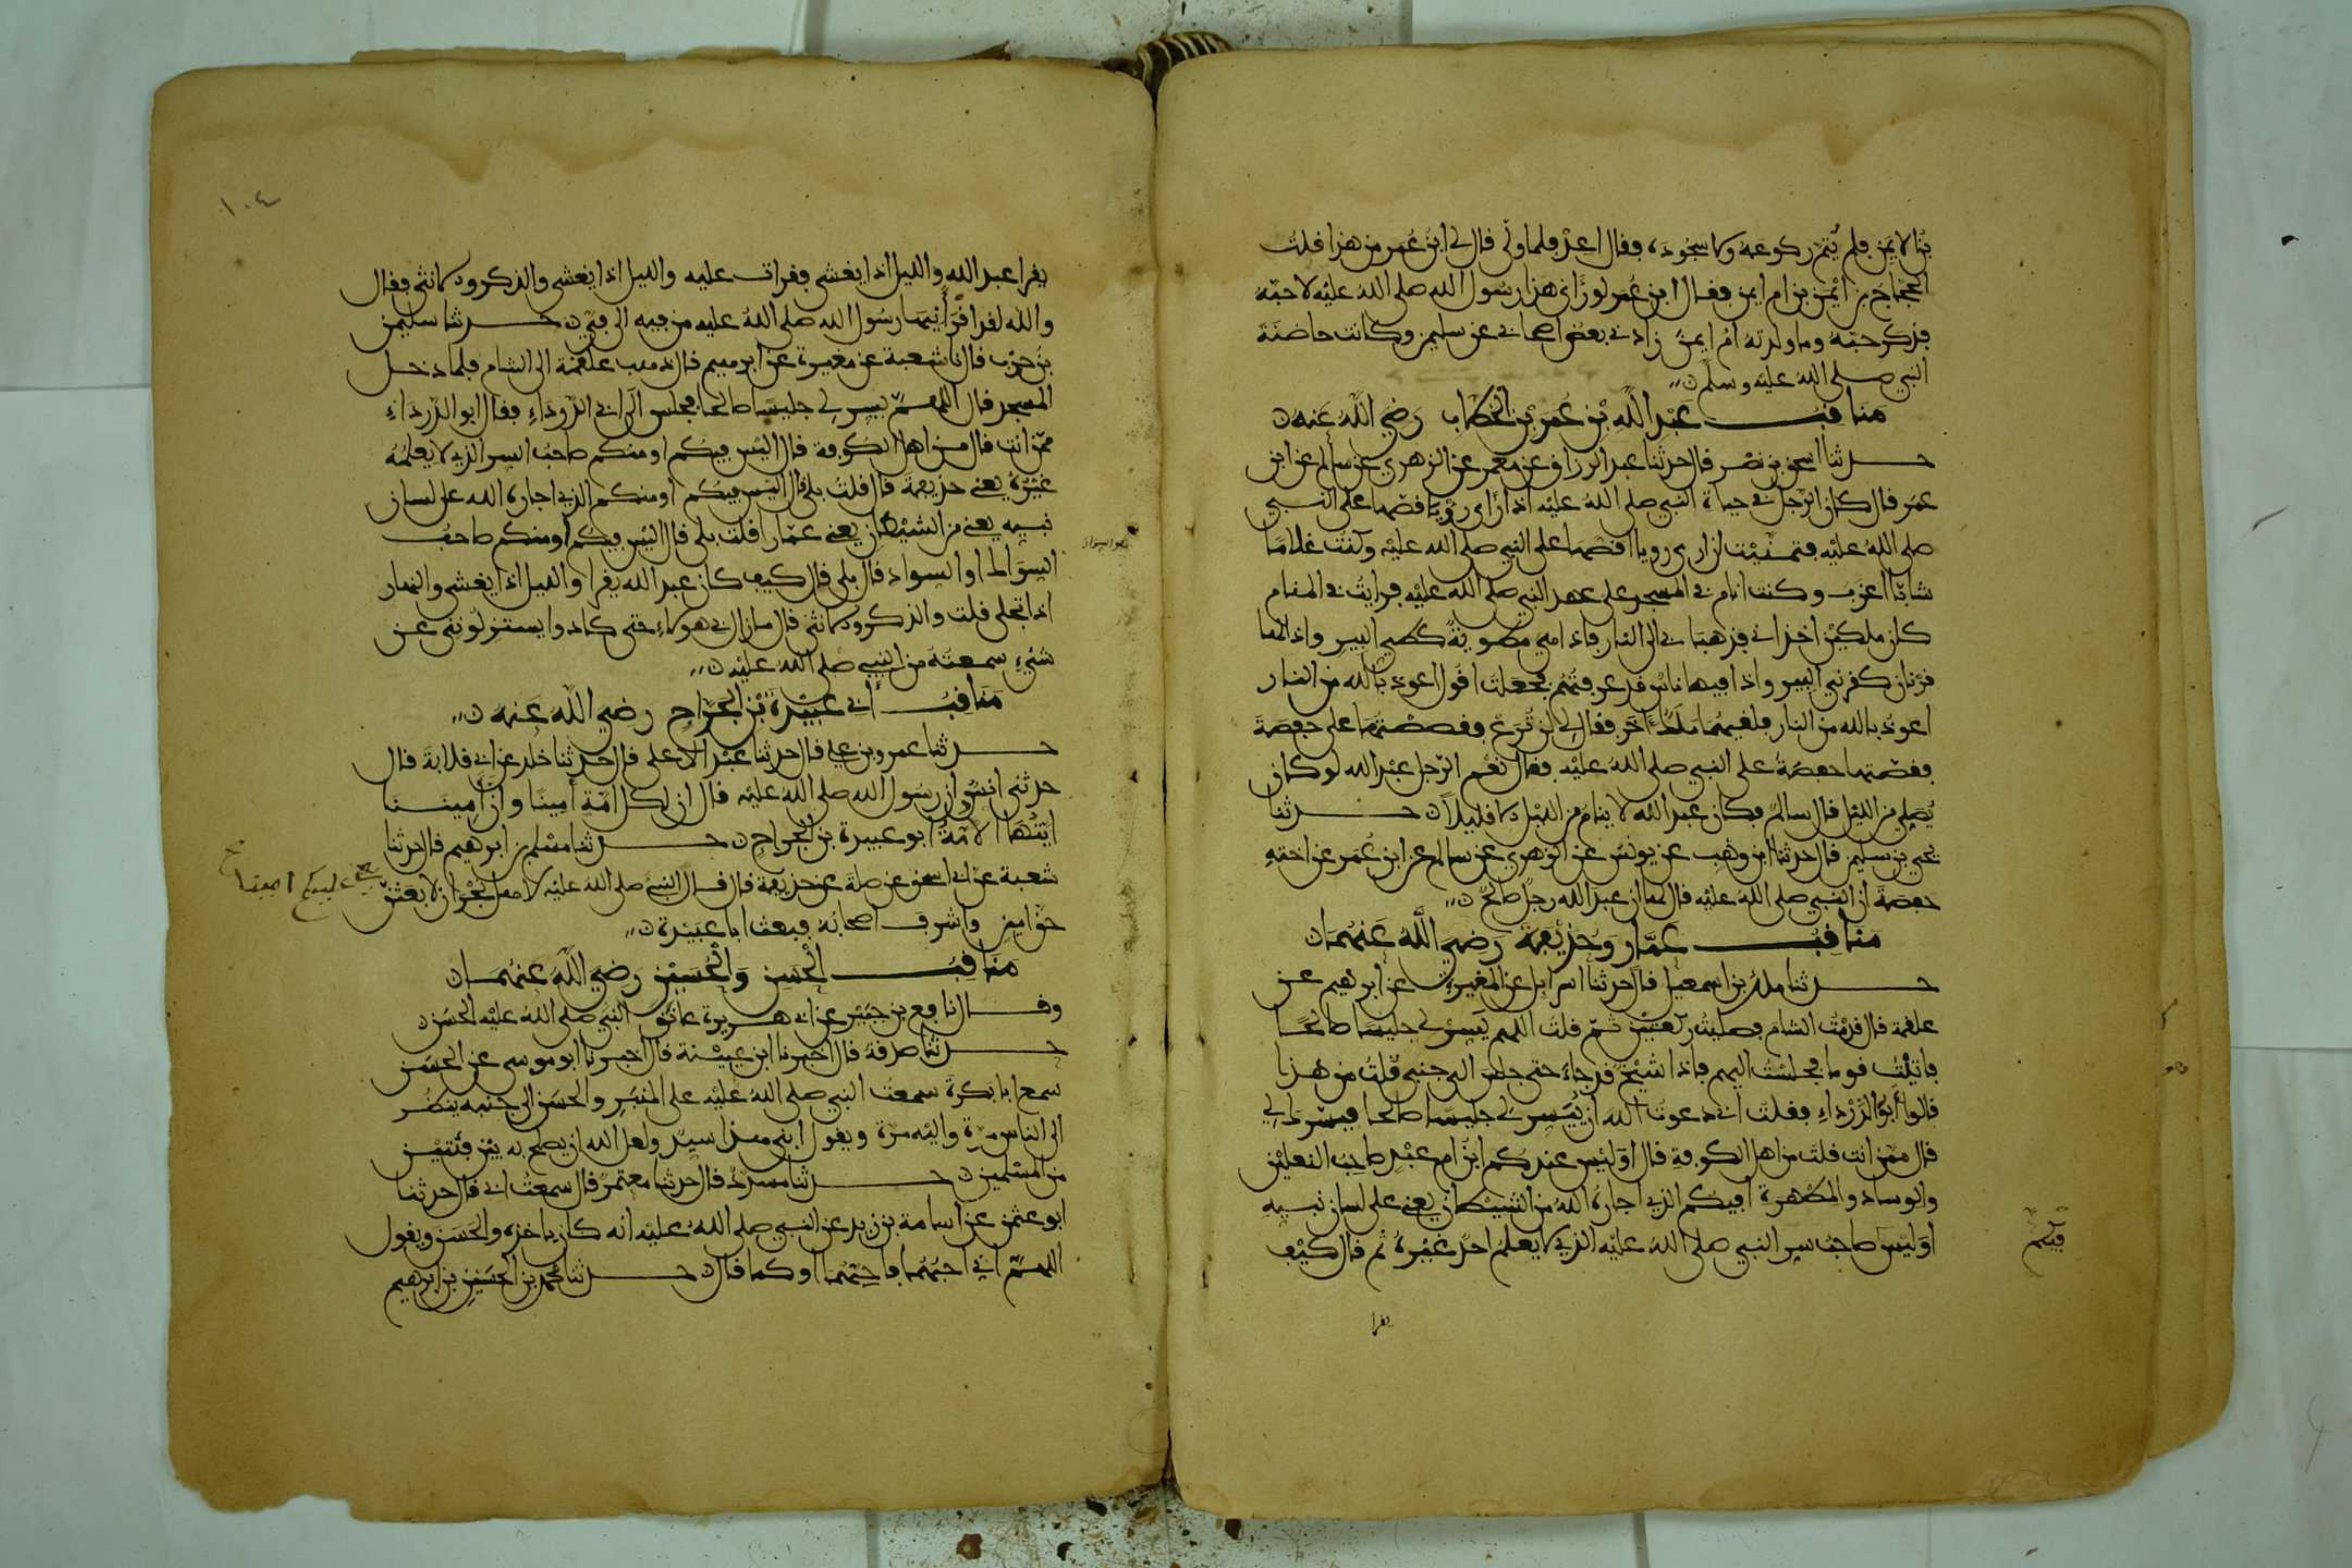 بن الايمن فلم يتم ركوعه ولا سجوده فقال اعد فلما ولى قال لي ابن عمر من هذا قلت
الحجاج بن ايمن بن ام ايمن فقال ابن عمر لو راى هذا رسول الله صلى الله عليه لاحبه
فذكر حبه وما ولدته ام ايمن زادني بعض اصحابي عن سليمن وكانت حاضنة
النبي صلى الله عليه وسلم
مناقب عبد الله بن عمر بن الخطاب رضي الله عنه
حدثنا اسحق بن نصر قال حدثنا عبد الرزاق عن معمر عن الزهري عن سالم عن ابن
عمر قال كان الرجل في حياة النبي صلى الله عليه اذا راى رؤيا قصها على النبي
صلى الله عليه فتمنيت ان ارى رويا اقصها على النبي صلى الله عليه وكنت غلاما
شابا اعزب وكنت انام في المسجد على عهد النبي صلى الله عليه فرايت في المنام
كان ملكين اخذاني فذهبا بي الى النار فاذا هي مطوية كطي البير واذا لها
قرنان كقرني البير واذا فيها ناس قد عرفتهم فجعلت اقول اعوذ بالله من النار
اعوذ بالله من النار فلقيهما ملك اخر فقال لي لن ترع فقصصتها على حفصة
فقصتها حفصة على النبي صلى الله عليه فقال نعم الرجل عبد الله لو كان
يصلي من الليل قال سالم فكان عبد الله لا ينام من الليل الا قليلا حدثنا
يحيى بن سليمن قال حدثنا ابن وهب عن يونس عن الزهري عن سالم عن ابن عمر عن اخته
حفصة ان النبي صلى الله عليه قال لها ان عبد الله رجل صالح
مناقب عمار وحذيفة رضي الله عنهما
حدثنا ملك بن اسمعيل قال حدثنا اسرايل عن المغيرة عن ابرهيم عن
علقمة قال قدمت الشام فصليت ركعتين ثم قلت اللهم يسر لي جليسا صالحا
فاتيت قوما فجلست اليهم فاذا شيخ قد جاء حتى جلس الى جنبي قلت من هذا
قالوا ابو الدرداء فقلت اني دعوت الله ان ييسر لي جليسا صالحا فيسرك لي
قال ممن انت قلت من اهل الكوفة قال اوليس عندكم ابن ام عبد صاحب النعلين
والوساد والمطهرة افيكم الذي اجاره الله من الشيطان يعني على لسان نبيه
اوليس صاحب سر النبي صلى الله عليه الذي لا يعلم احد غيره ثم قال كيف
فيكم
يقرا
١٠٤
يقرا عبد الله والليل اذا يغشى فقرات عليه والليل اذا يغشى والذكر والانثى فقال
والله لقد اقرأنيها رسول الله صلى الله عليه من فيه الى في حدثنا سليمن
بن حرب قال نا شعبة عن مغيرة عن ابرهيم قال ذهب علقمة الى الشام فلما دخل
المسجد قال اللهم يسر لي جليسا صالحا فجلس الى ابي الدرداء فقال ابو الدرداء
ممن انت قال من اهل الكوفة قال اليس فيكم او منكم صاحب السر الذي لا يعلمه
غيره يعني حذيفة قال قلت بلى قال اليس فيكم او منكم الذي اجاره الله على لسان
نبيه يعني من الشيطان يعني عمارا قلت بلى قال اليس فيكم او منكم صاحب
السواك او السواد قال بلى قال كيف كان عبد الله يقرا والليل اذا يغشى والنهار
اذا تجلى قلت والذكر والانثى قال ما زال بي هولاء حتى كادوا يستنزلونني عن
شيء سمعته من النبي صلى الله عليه
مناقب ابي عبيدة بن الجراح رضي الله عنه
حدثنا عمرو بن علي قال حدثنا عبد الاعلى قال حدثنا خلد عن ابي قلابة قال
حدثني انس ان رسول الله صلى الله عليه قال ان لكل امة امينا وان اميننا
ايتها الامة ابو عبيدة بن الجراح حدثنا مسلم بن ابرهيم قال حدثنا
شعبة عن ابي اسحق عن صلة عن حذيفة قال قال النبي صلى الله عليه لاهل نجران لابعثن
حق امين فاشرف اصحابه فبعث ابا عبيدة
مناقب الحسن والحسين رضي الله عنهما
وقال نافع بن جبير عن ابي هريرة عانق النبي صلى الله عليه الحسن
حدثنا صدقة قال اخبرنا ابن عيينة قال اخبرنا ابو موسى عن الحسن
سمع ابا بكرة سمعت النبي صلى الله عليه على المنبر والحسن الى جنبه ينظر
الى الناس مرة واليه مرة ويقول ابني هذا سيد ولعل الله ان يصلح به بين فئتين
من المسلمين حدثنا مسدد قال حدثنا معتمر قال سمعت ابي قال حدثنا
ابو عثمن عن اسامة بن زيد عن النبي صلى الله عليه انه كان ياخذه والحسن ويقول
اللهم اني احبهما فاحبهما او كما قال حدثنا محمد بن الحسين بن ابرهيم